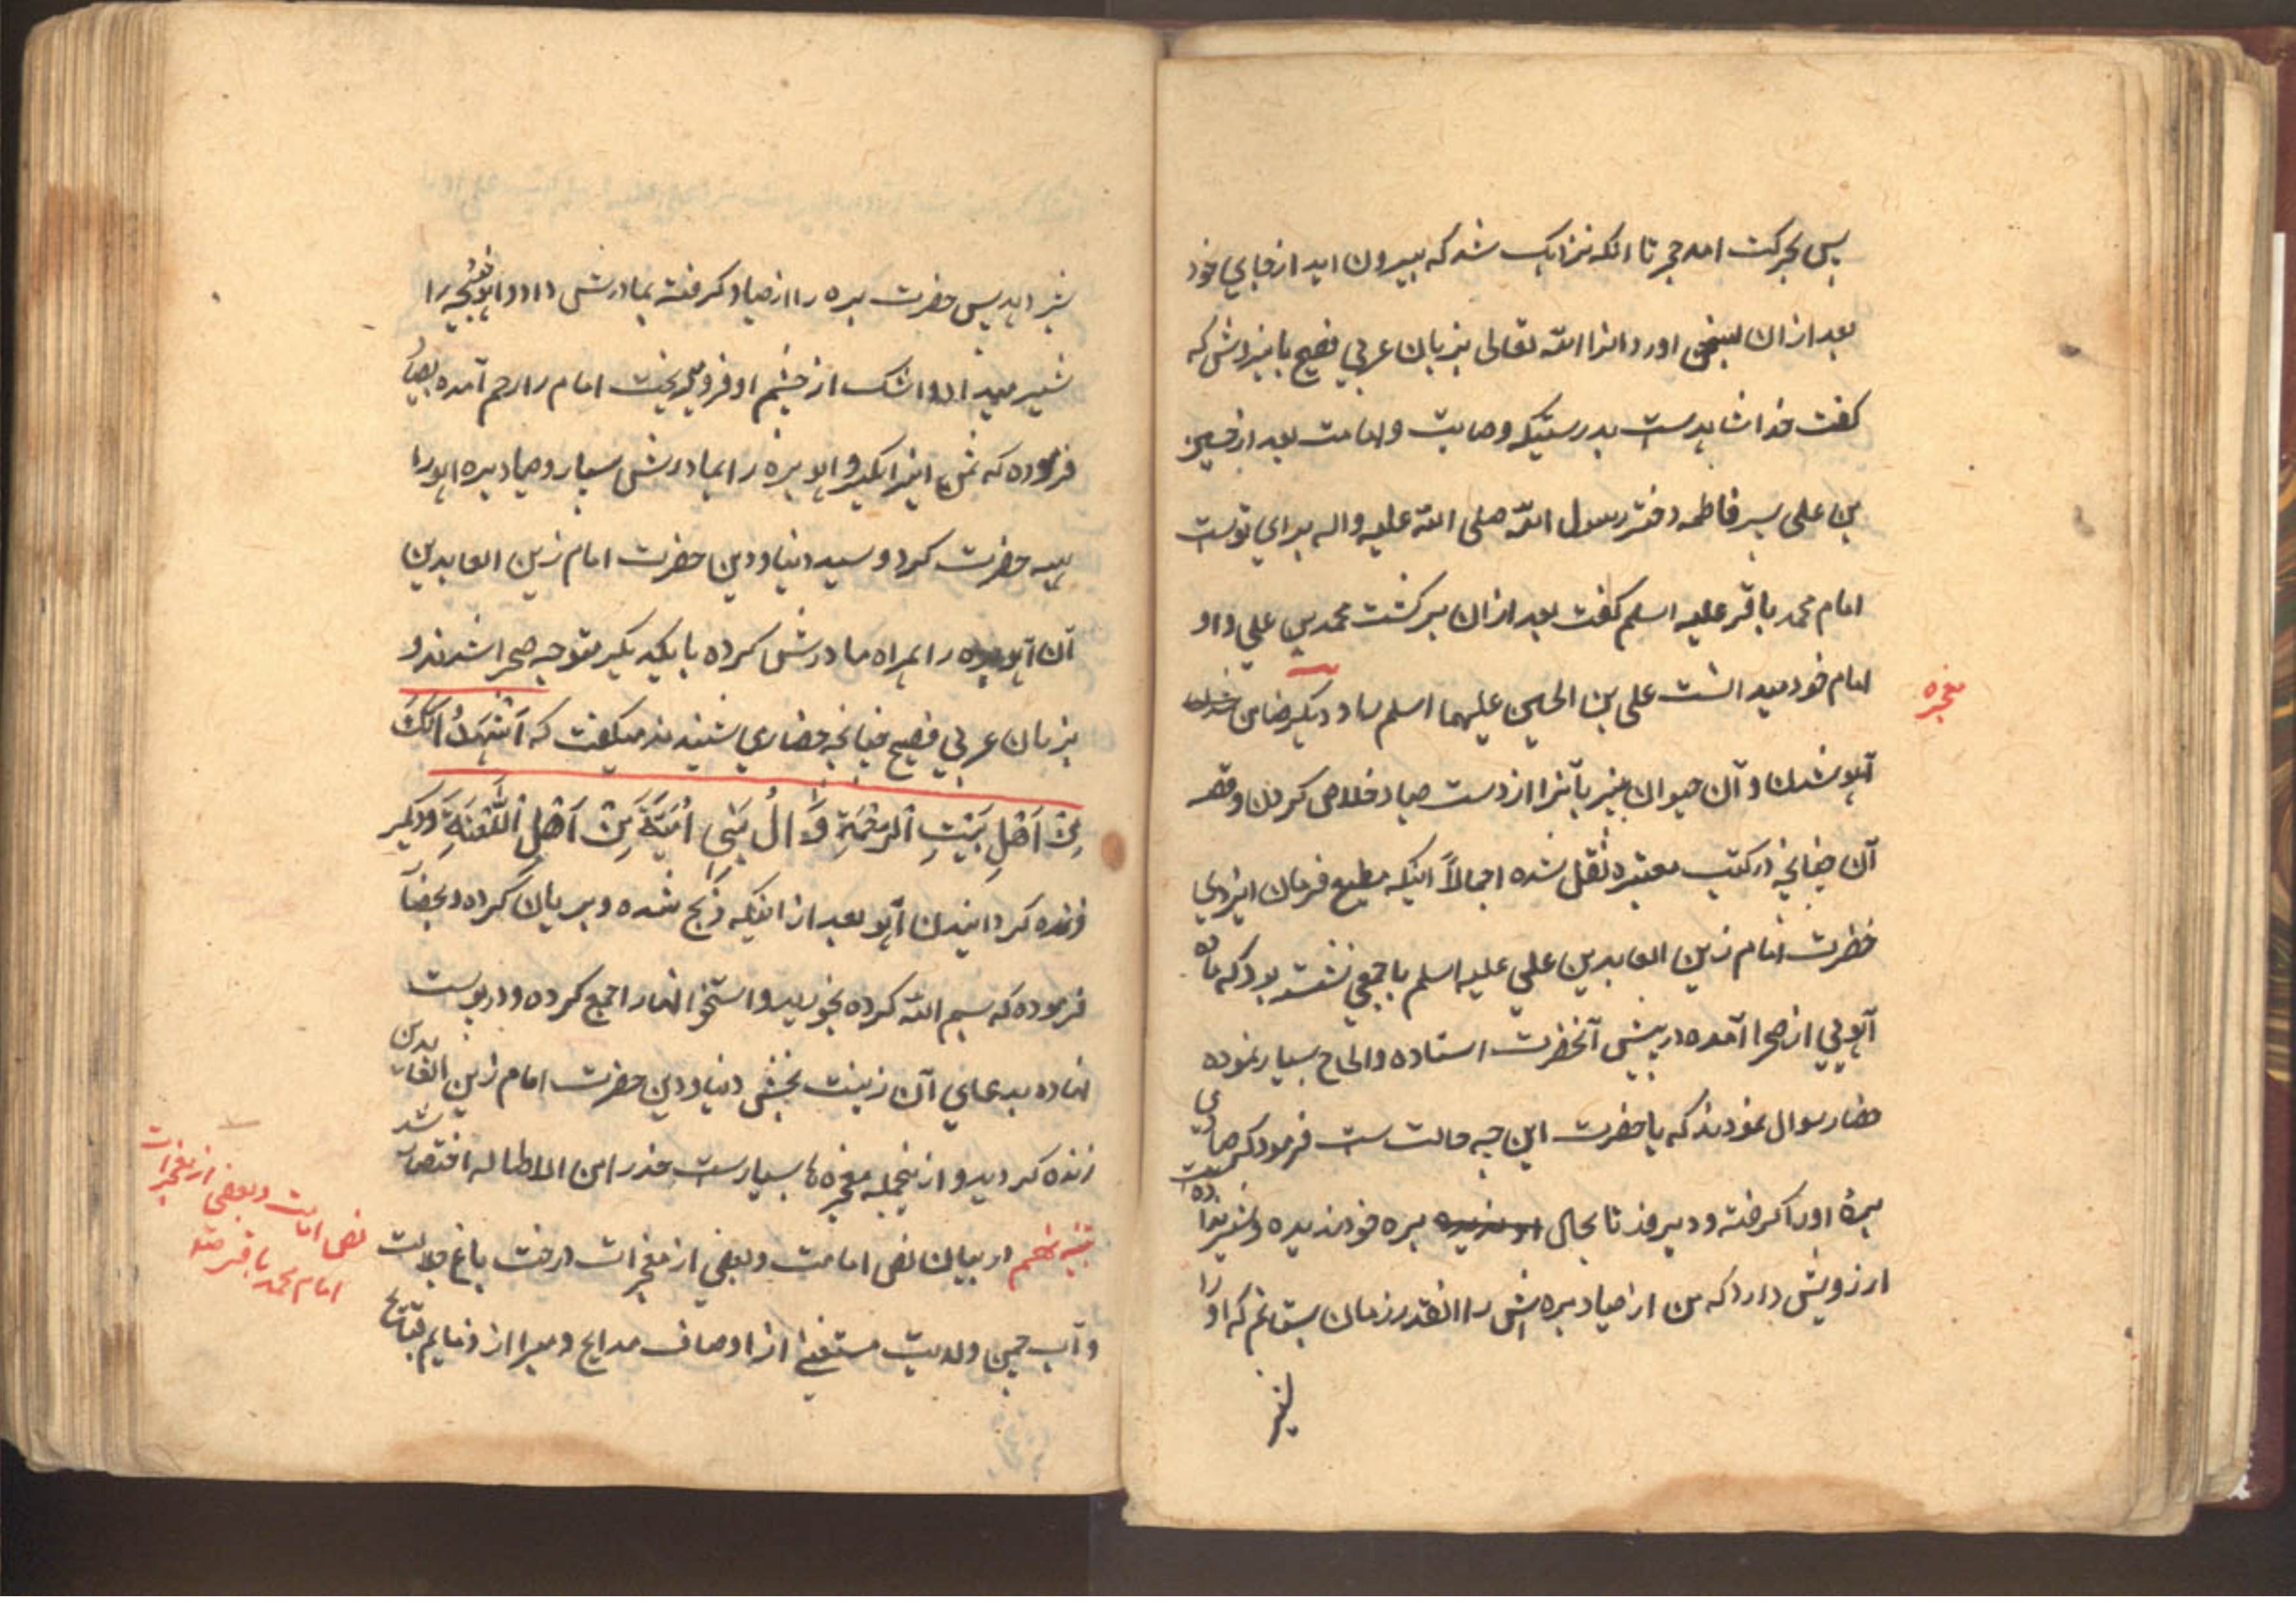 پس بحرکت امد حجر تا انکه نزدیک شد که بیرون اید از جای خود
بعد از ان بسخن اورد انرا الله تعالی بزبان عربی فصیح با مردش که
کفت خدا شاهدست بدرستیکه وصایت و امامت بعد از حسین
بن علی پسر فاطمه دختر رسول الله صلی الله علیه واله برای توست
امام محمد باقر علیه اسلم کفت بعد از ان برکشت محمد بن علی و او
امام خود میدانست علی بن الحسین علیهما اسلم را و دیکر ضامن شدن
معجزه
آهو شدن و آن حیوان را از دست صیاد خلاص کردن و قصه
آن چنانچه در کتب معتبره نقل شده اجمالاً اینکه مطیع فرمان ایزدی
حضرت امام زین العابدین علی علیه اسلم با جمعی نشسته بود که ماده
آهویی از صحرا آمده در پیش آنحضرت استاده و الحاح بسیار نموده
حضار سوال نمودند که یا حضرت این چه حالت ست فرمود که صیادی
برهٔ او را کرفته و دیروز تا بحال بره خود ندیده و شیر نداده
ارزویش دارد که من از صیاد بره اش را انقدر زمان بستانم که او را
شیر
شیر دهد پس حضرت بره را از صیاد کرفته بمادرش داد و اهو بچه را
شیر میداد و اشک از چشم او فرو میریخت امام را رحم آمده بصیاد
فرموده که ثمن اینرا بکیر و اهو بره را بمادرش سپار و صیاد بره اهو را
هبه حضرت کرد و سید دنیا و دین حضرت امام زین العابدین
آن آهو بره را همراه مادرش کرده با یکدیکر متوجه صحرا شدند و
بزبان عربی فصیح چنانچه حضاری شنیدند میکفت که اَشْهَدُ اَنَّکَ
مِنْ اَهْلِ بَیْتِ الرَّحْمَةِ وَ الُ بَنِی اُمَیَّةَ مِنْ اَهْلِ اللَّعْنَةِ و دیکر
زنده کردانیدن آهو بعد از اینکه ذبح شده و بریان کرده و بحضار
فرموده که بسم الله کرده بخورید و استخوانها را جمع کرده و در پوست
نهاده بدعای آن زینت بخش دنیا و دین حضرت امام زین العابدین
زنده کردید و از ینجمله معجزه ها بسیارست حذرا من الاطاله اختصار شد
در بیان نص امامت و بعضی از معجزات درخت باغ ولایت
نص امامت و بعضی از معجزات
امام محمد باقر
و آب چمن ولایت مستغنی از اوصاف مدایح و مبرا از ذمایم قبایح